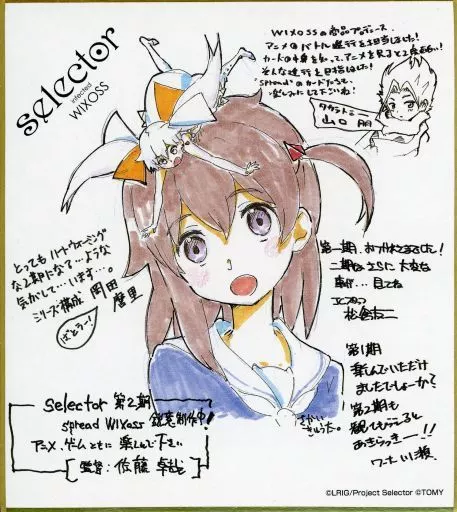 selector
infected
WIXOSS
WIXOSSの商品プロデュース、
アニメのバトル進行を担当しました!
カードの中身を知って、アニメを見ると2度おもしろい!
そんな進行を目指しました!
"spread"のカードたちも、
楽しみにして下さいね!
タカラトミー
山口 朋
とってもハートウォーミング
な2部になって…ような
気がして…います…。
シリーズ構成 岡田麿里
ばとるー!
第一期、おつかれさまでした!
二期はさらに大変な
事が… 見てね
松倉友二
第1期
楽しんでいただけ
ましたでしょーか?
第2期も
観てもらえると
あきらっきー!!
ワーナー 川瀬
さかい
きゅうた。
selector 第2期
spread WIXOSS 鋭意制作中!
アニメ、ゲームともに楽しんで下さい
監督:佐藤卓哉
©LRIG/Project Selector ©TOMY